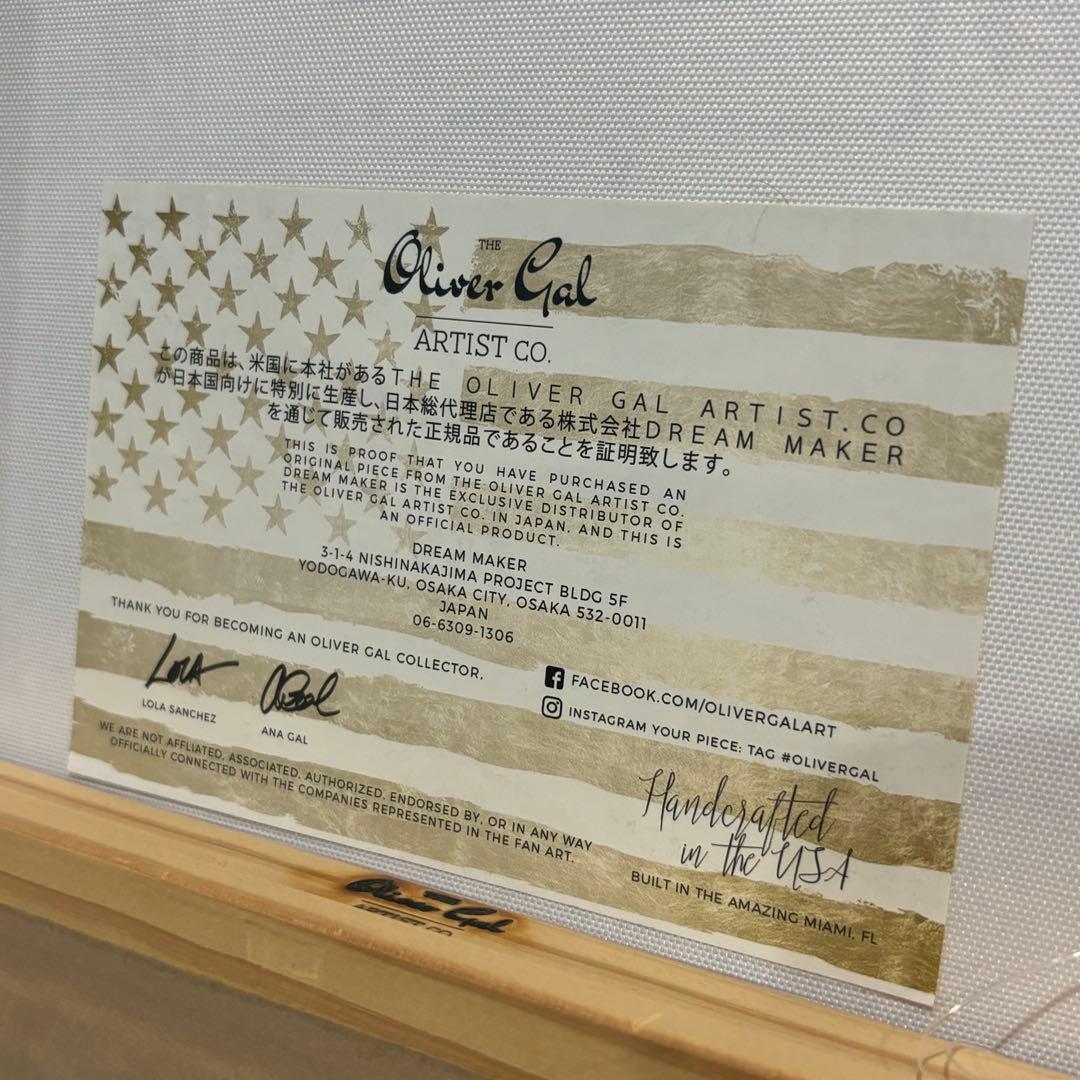 THE
Oliver Gal
ARTIST CO.
この商品は、米国に本社があるTHE OLIVER GAL ARTIST.CO
が日本国向けに特別に生産し、日本総代理店である株式会社DREAM MAKER
を通じて販売された正規品であることを証明致します。
THIS IS PROOF THAT YOU HAVE PURCHASED AN
ORIGINAL PIECE FROM THE OLIVER GAL ARTIST CO.
DREAM MAKER IS THE EXCLUSIVE DISTRIBUTOR OF
THE OLIVER GAL ARTIST CO. IN JAPAN. AND THIS IS
AN OFFICIAL PRODUCT.
DREAM MAKER
3-1-4 NISHINAKAJIMA PROJECT BLDG 5F
YODOGAWA-KU, OSAKA CITY, OSAKA 532-0011
JAPAN
06-6309-1306
THANK YOU FOR BECOMING AN OLIVER GAL COLLECTOR.
LOLA
LOLA SANCHEZ
ANA GAL
FACEBOOK.COM/OLIVERGALART
INSTAGRAM YOUR PIECE: TAG #OLIVERGAL
WE ARE NOT AFFLIATED, ASSOCIATED, AUTHORIZED, ENDORSED BY, OR IN ANY WAY
OFFICIALLY CONNECTED WITH THE COMPANIES REPRESENTED IN THE FAN ART.
Handcrafted
in the USA
BUILT IN THE AMAZING MIAMI, FL
Oliver Gal
ARTIST CO.